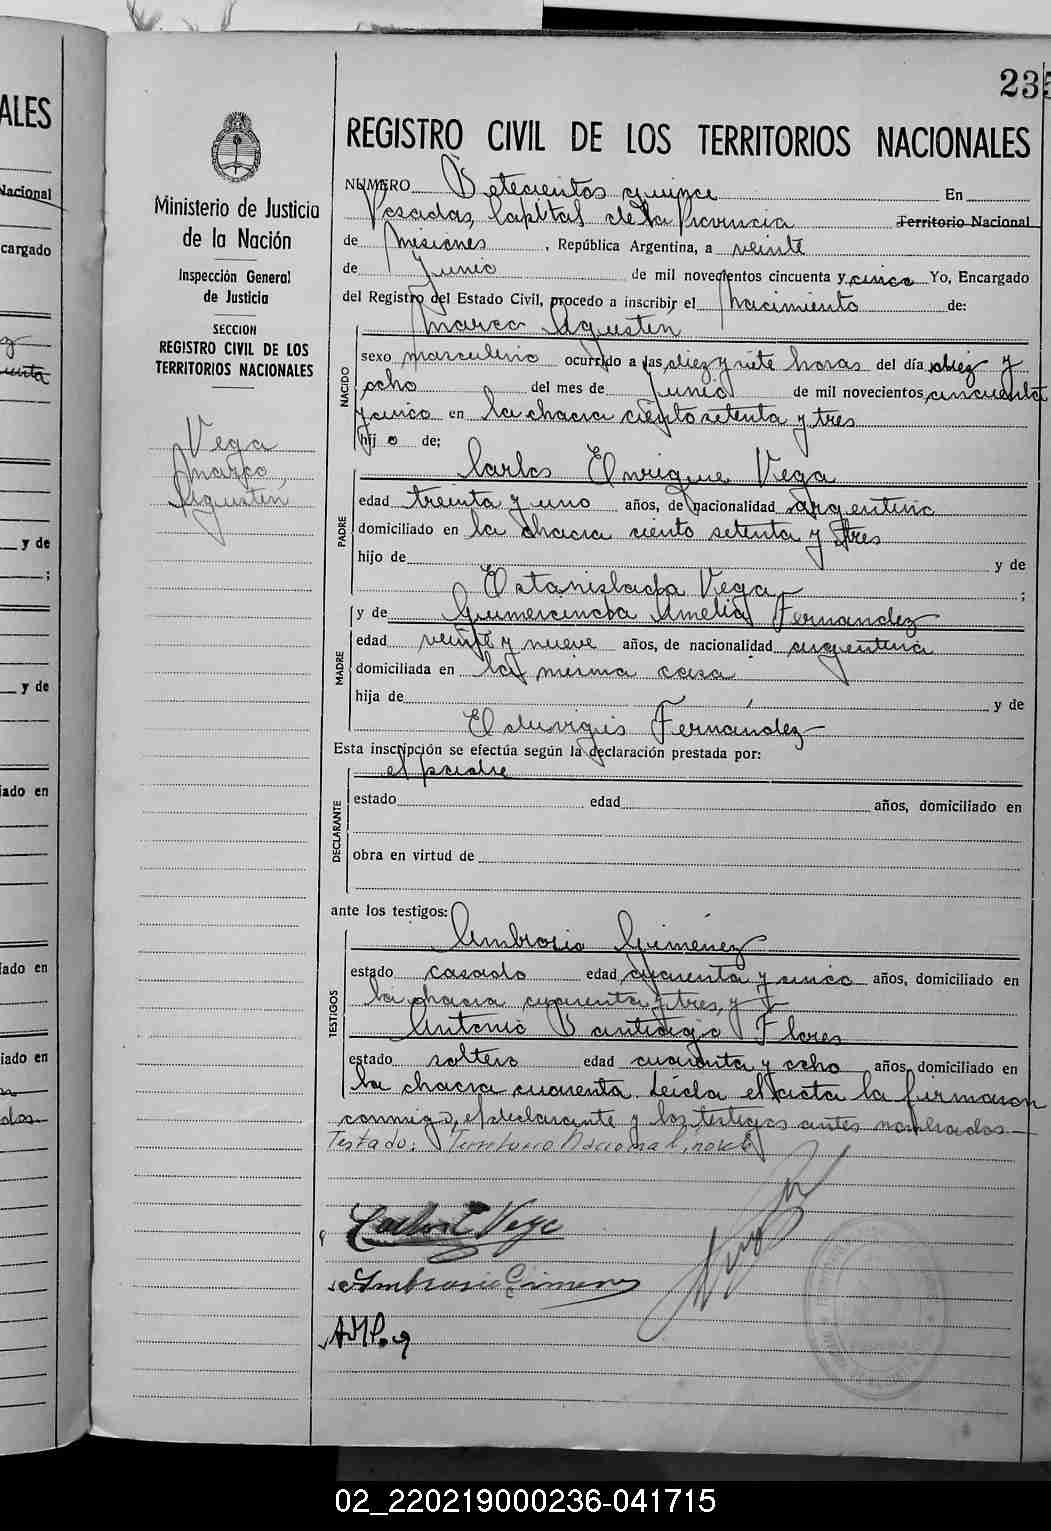 235
ALES
Nacional
cargado
y de
;
y de
iado en
iado en
iado en
Ministerio de Justicia
de la Nación
Inspección General
de Justicia
SECCION
REGISTRO CIVIL DE LOS
TERRITORIOS NACIONALES
Vega
Marco
Agustín
REGISTRO CIVIL DE LOS TERRITORIOS NACIONALES
NUMERO Setecientos quince En
Posadas, Capital de la Provincia Territorio Nacional
de Misiones, República Argentina, a veinte
de Junio de mil novecientos cincuenta y cinco Yo, Encargado
del Registro del Estado Civil, procedo a inscribir el Nacimiento de:
Marco Agustín
NACIDO
sexo masculino ocurrido a las diez y siete horas del día diez y
ocho del mes de Junio de mil novecientos cincuenta
y cinco en la chacra ciento setenta y tres
hijo de:
Carlos Enrique Vega
PADRE
edad treinta y uno años, de nacionalidad argentina
domiciliado en la chacra ciento setenta y tres
hijo de y de
Estanislada Vega ;
y de Gumercinda Amelia Fernandez
MADRE
edad veinte y nueve años, de nacionalidad argentina
domiciliada en la misma casa
hija de y de
Eduvigis Fernández
Esta inscripción se efectúa según la declaración prestada por:
el padre
DECLARANTE
estado edad años, domiciliado en
obra en virtud de
ante los testigos:
Ambrosio Giménez
TESTIGOS
estado casado edad cuarenta y cinco años, domiciliado en
la chacra cuarenta y tres, y
Antonio Santiago Flores
estado soltero edad cuarenta y ocho años, domiciliado en
la chacra cuarenta. Leída el acta la firmaron
conmigo, el declarante y los testigos antes nombrados.
Testado: Territorio Nacional: no vale
Carlos E Vega
Ambrosio Gimenez
02_220219000236-041715